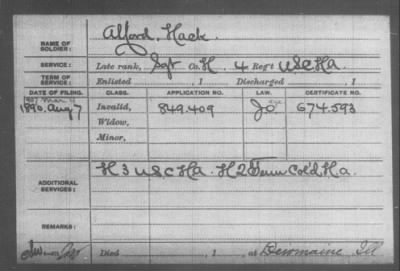 NAME OF SOLDIER: Alford, Hack
SERVICE: Late rank, Sgt Co. H, 4 Reg't U S C H A.
TERM OF SERVICE: Enlisted , 1 Discharged , 1
DATE OF FILING. CLASS. APPLICATION NO. LAW. CERTIFICATE NO.
1890, Aug 7 Invalid, 849.409 674.593
Widow,
Minor,
ADDITIONAL SERVICES: H 3 U S C H A. H 2 Tenn Col'd. H a.
REMARKS:
Died , 1 , at Dewmaine Ill